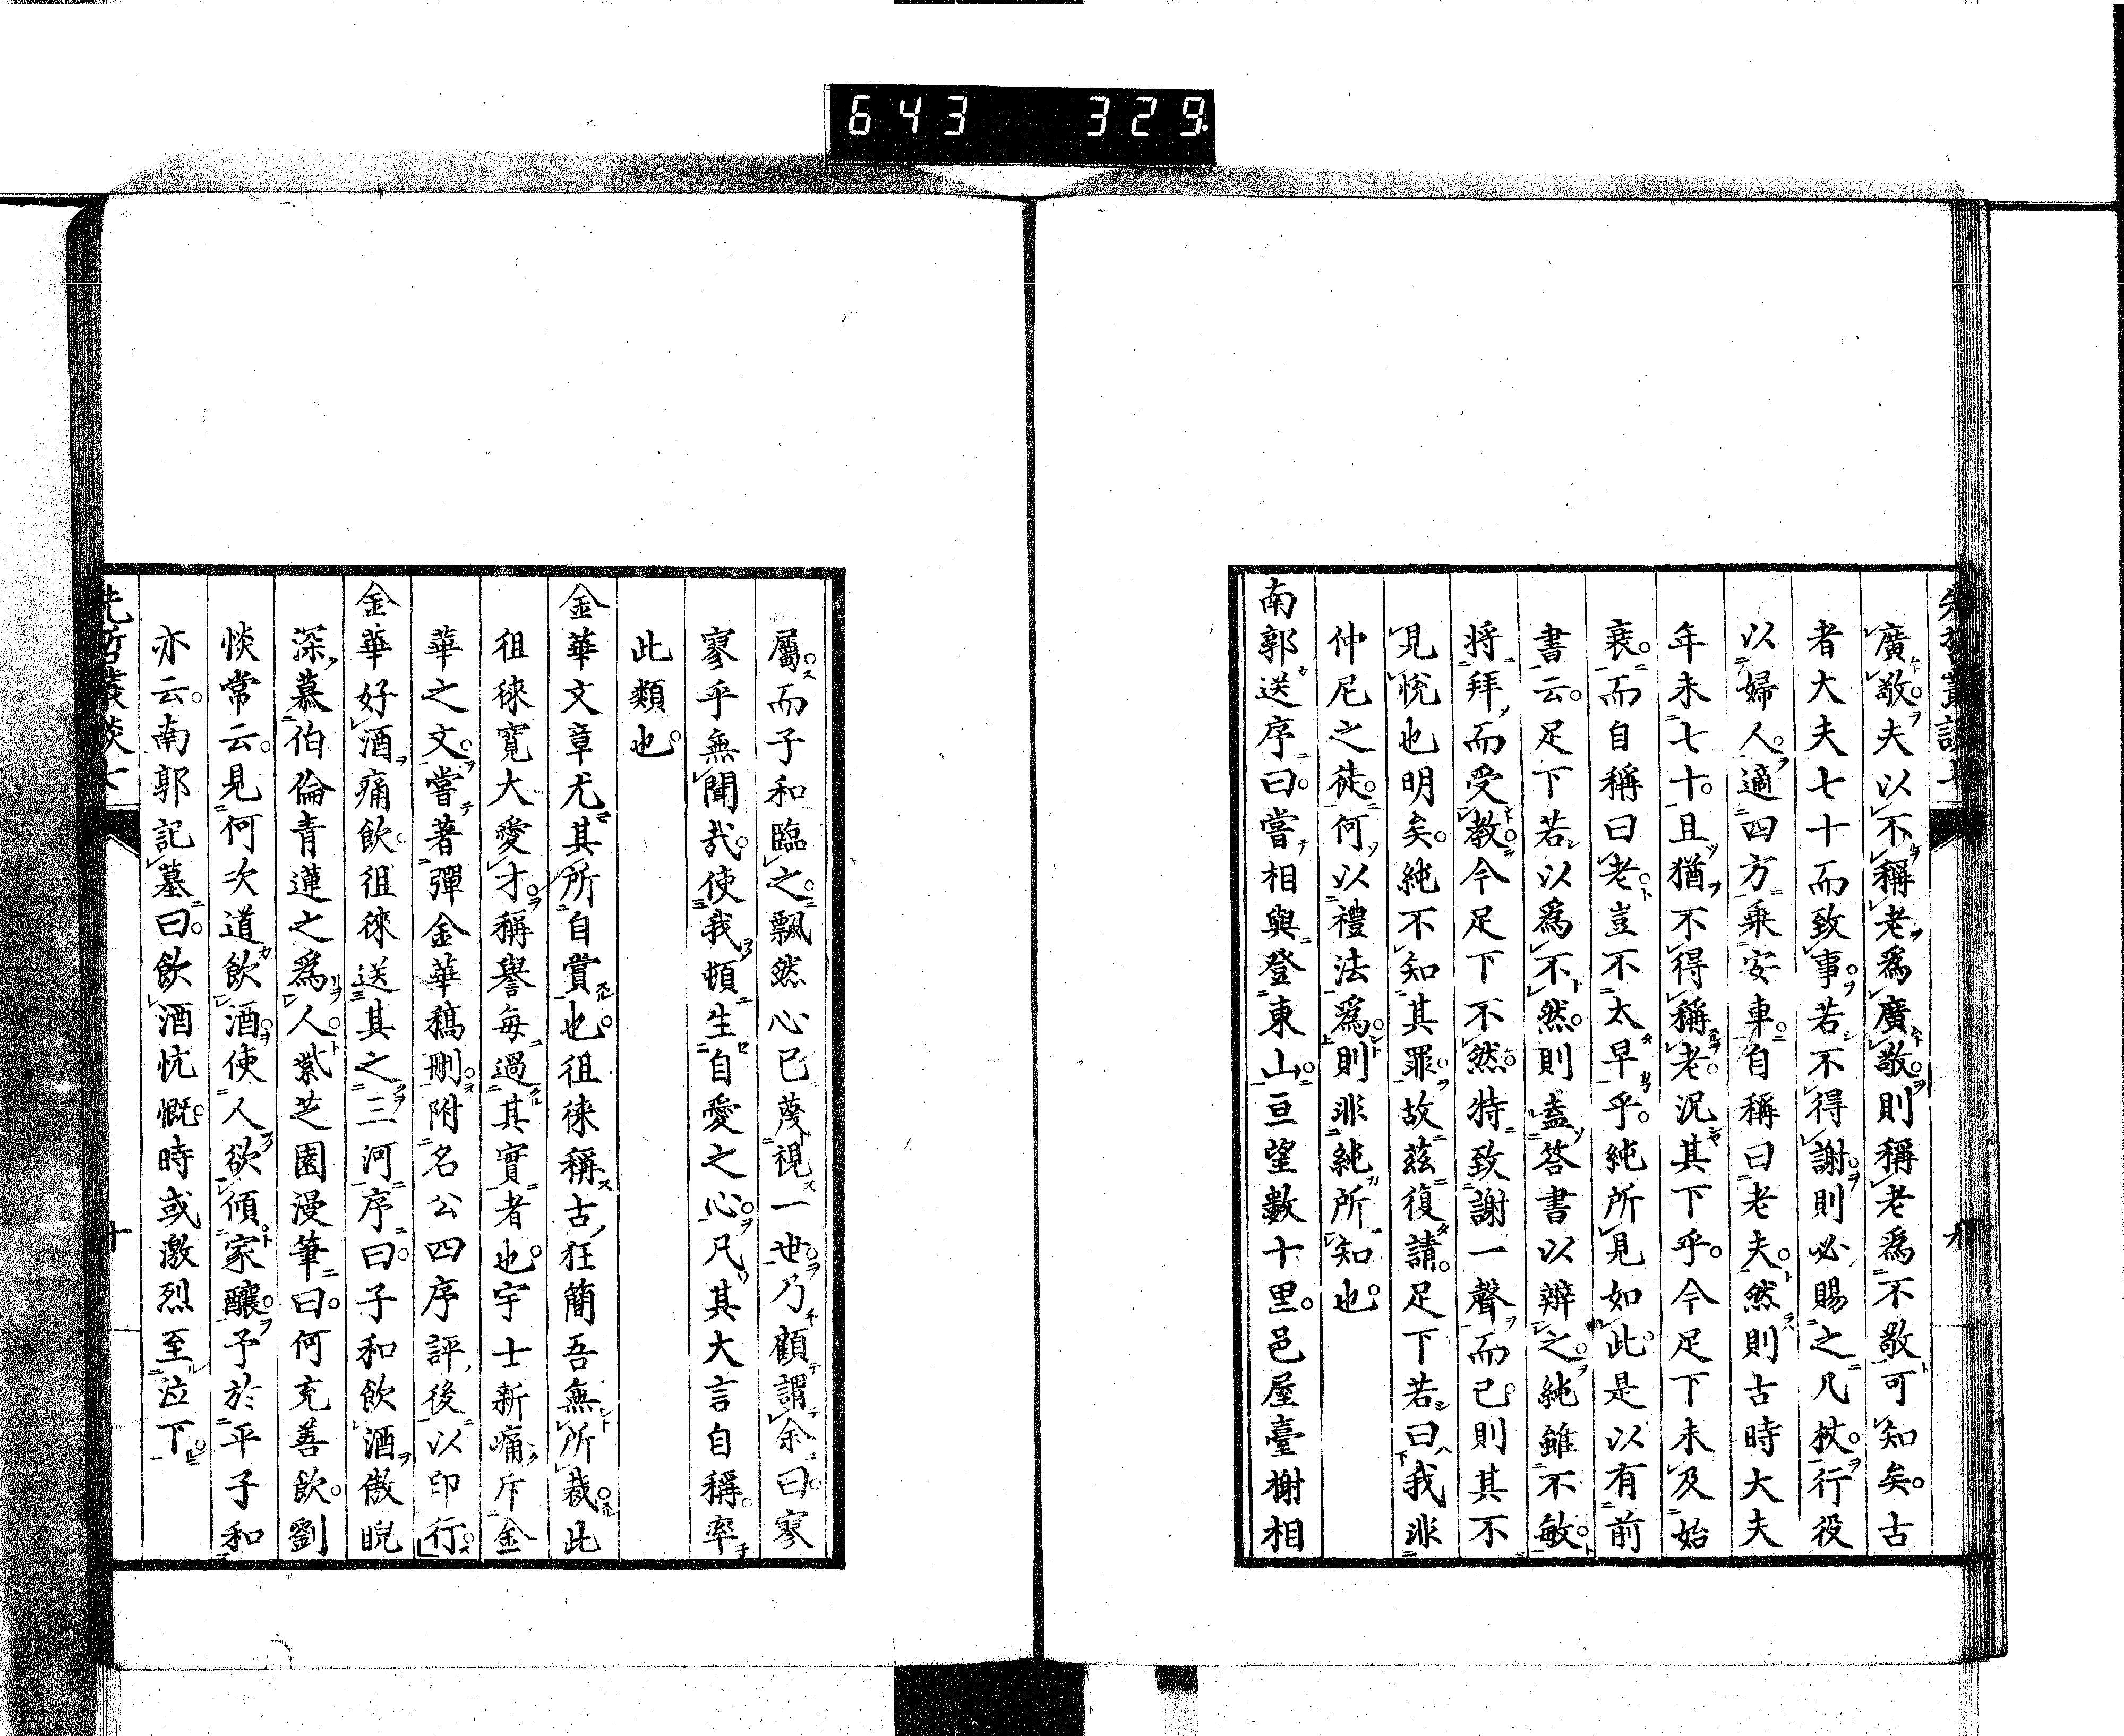 643 329
廣敬夫以不稱老爲廣敬則稱老爲不敬可知矣。古
者大夫七十而致事。若不得謝則必賜之几杖。行役
以婦人。適四方乘安車。自稱曰老夫。然則古時大夫
年未七十。且猶不得稱老。況其下乎。今足下未及始
衰。而自稱曰老。豈不太早乎。純所見如此。是以有前
書云。足下若以爲不然。則盍答書以辨之。純雖不敏。
將拜而受教。今足下不然。特致謝一聲而已。則其不
見悅也明矣。純不知其罪。故茲復請。足下若曰我非
仲尼之徒。何以禮法爲。則非純所知也。
南郭送序曰。嘗相與登東山。亘望數十里。邑屋臺榭相
屬。而子和臨之。飄然心已蔑視一世。乃顧謂余曰。寥
寥乎無聞哉。使我頓生自愛之心。凡其大言自稱。率
此類也。
金華文章尤其所自賞也。徂徠稱古狂簡吾無所裁。此
徂徠寬大愛才。稱譽每過其實者也。宇士新痛斥金
華之文。嘗著彈金華稿刪。附名公四序評後以印行。
金華好酒痛飲。徂徠送其之三河序曰。子和飲酒傲睨
深慕伯倫青蓮之爲人。紫芝園漫筆曰。何充善飲。劉
惔常云。見何次道飲酒。使人欲傾家釀。予於平子和
亦云。南郭記墓曰。飲酒忼慨。時或激烈至泣下。
先哲叢談七
十